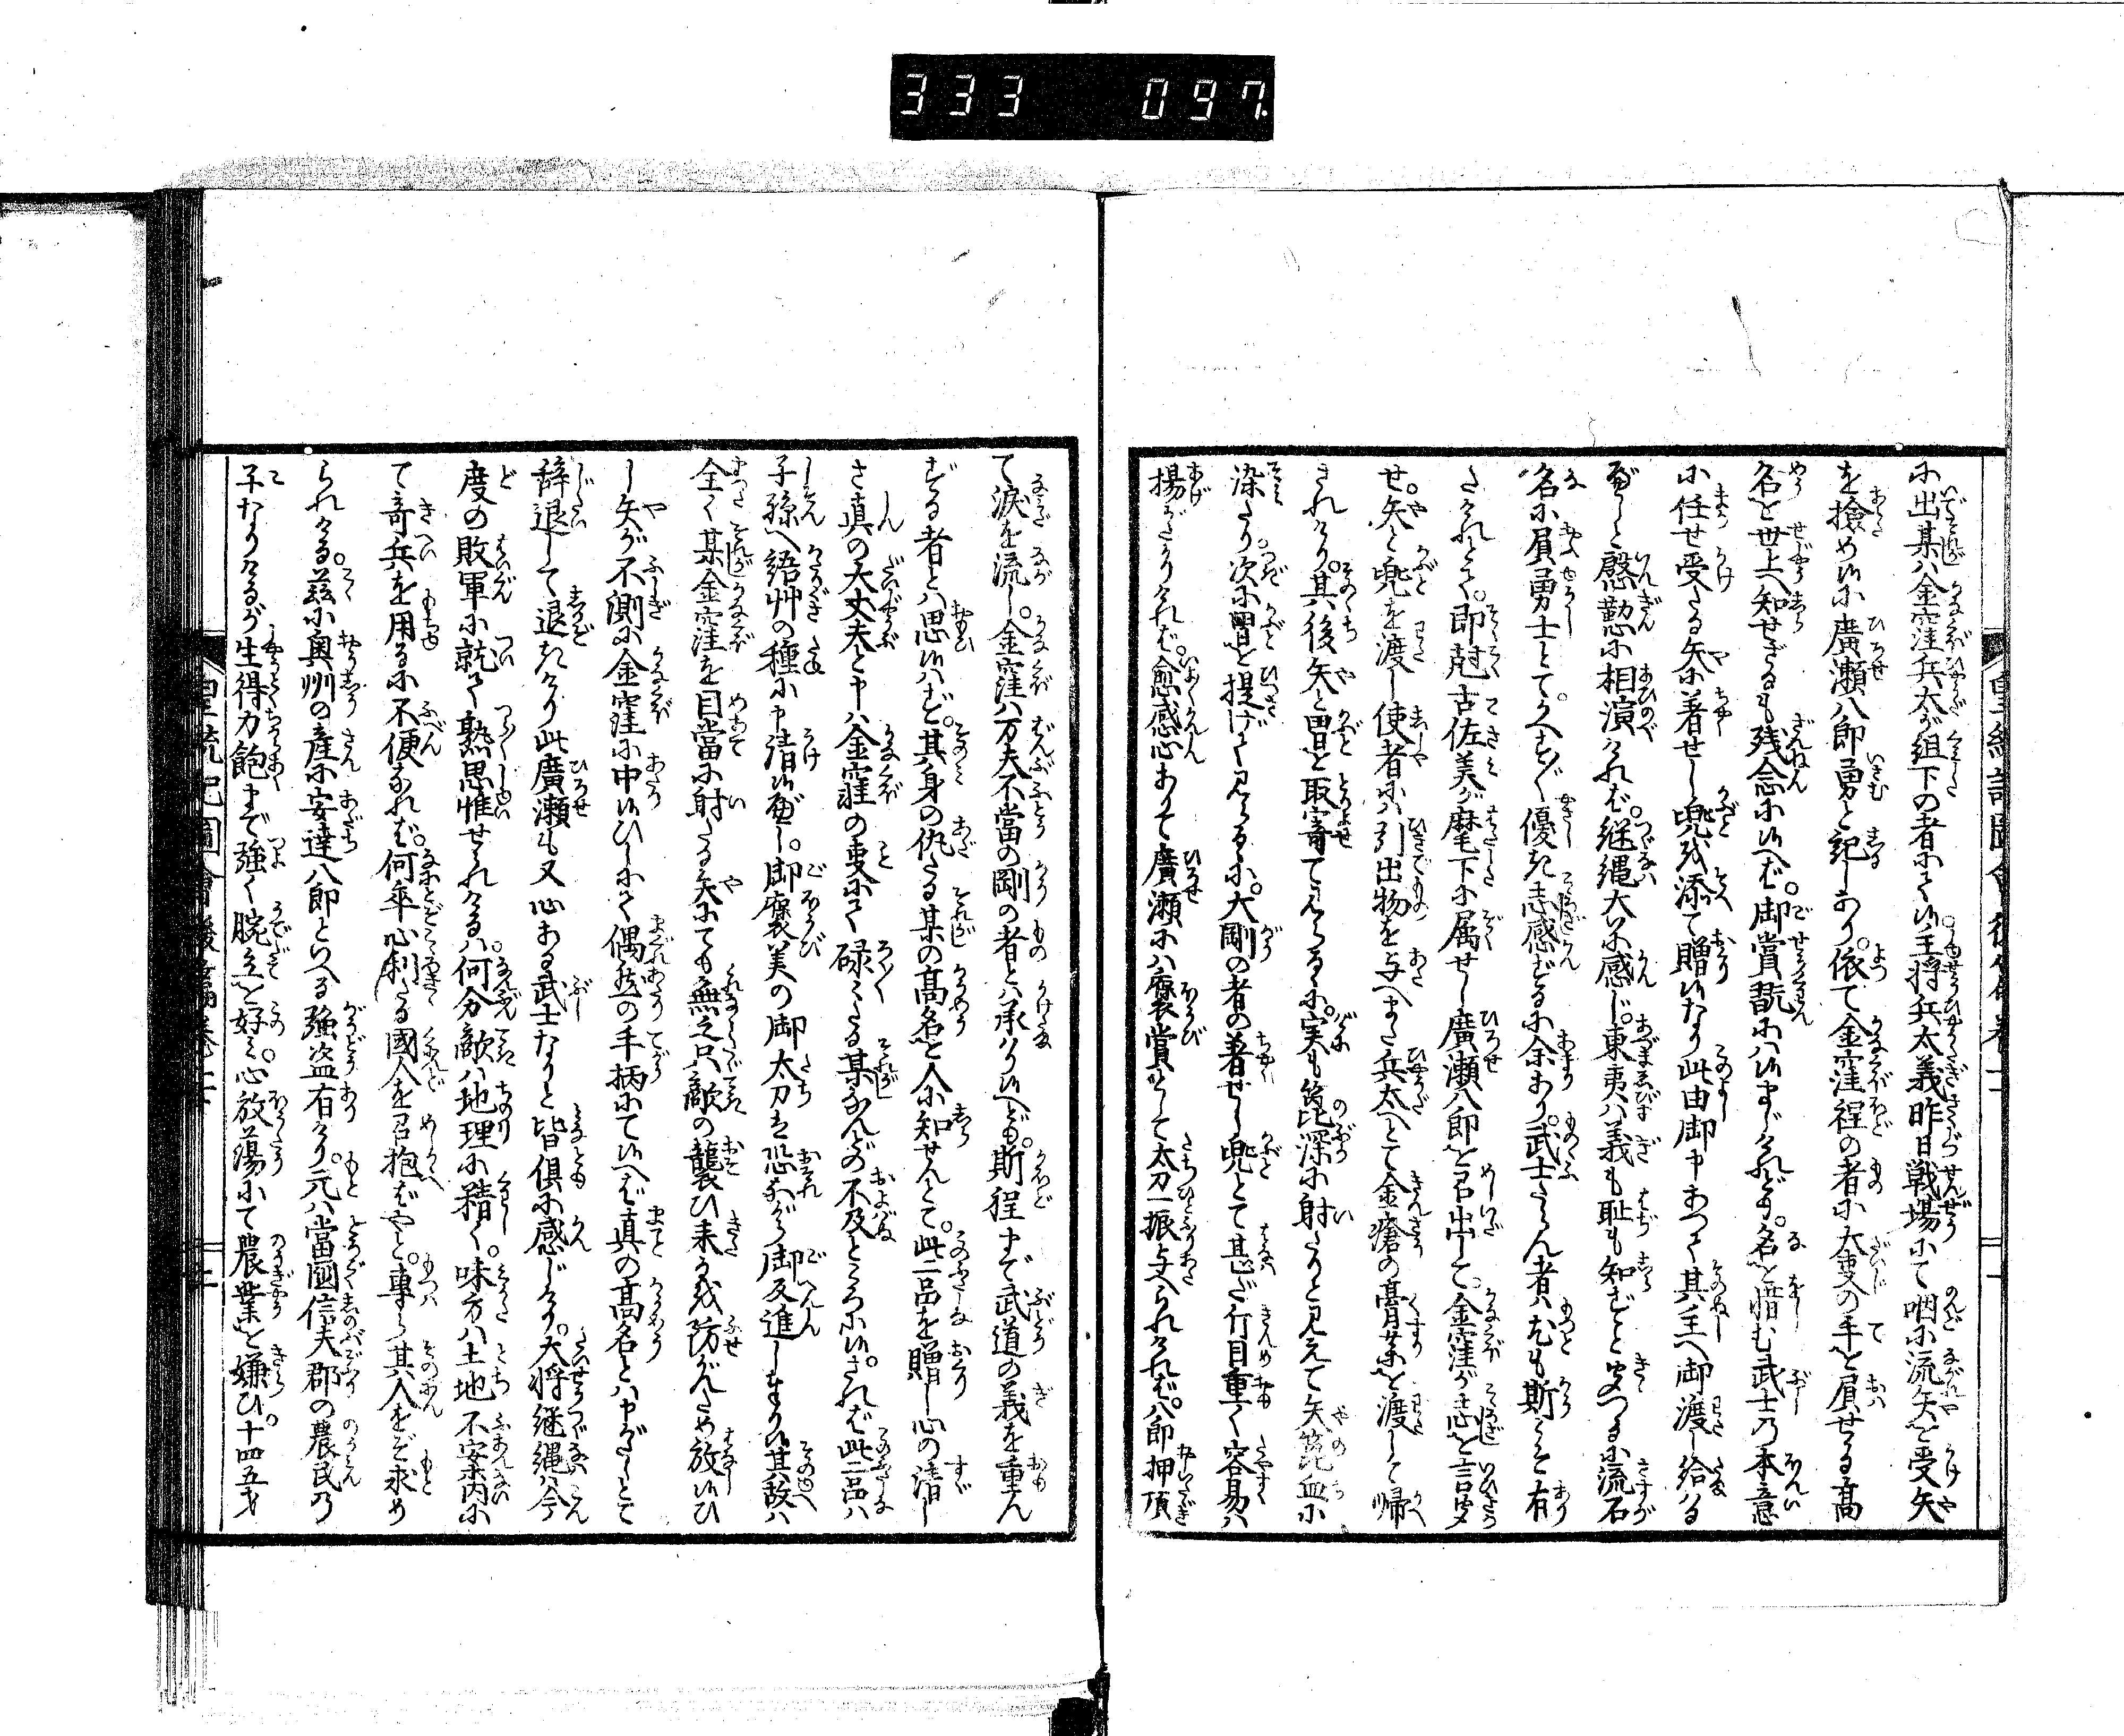 333 097
に出某ハ金窪兵太が組下の者にて候主将兵太義昨日戦場にて咽に流矢を受矢
を撿め候に廣瀬八郎勇と記しあり。依て金窪程の者に大事の手を屓せる高
名を世上へ知せざるも残念に候へバ。御賞翫にハ候まじけれども。名を惜む武士の本意
に任せ受たる矢に着せし兜を添て贈候なり此由御申あつて其主へ御渡し給はる
べしと慇懃に相演けれバ。継縄大に感じ。東夷ハ義も恥も知ずと聞つるに流石
名に屓勇士とて。かへす〴〵優き志感ずるに余あり。武士たらん者ハ尤も斯こそ有
たけれとて。即尅古佐美が麾下に属せし廣瀬八郎を召出して。金窪が志を言聞
せ。矢と兜を渡し使者にハ引出物を与へまた兵太へとて金瘡の膏薬を渡して帰
されけり。其後矢と冑を取寄て見らるるに。実も篦深に射たりと見えて矢篦血に
染たり。次に冑を提げて見るに。大剛の者の着せし兜とて甚だ行目重く容易ハ
揚がたかりけれバ。愈感心ありて廣瀬にハ褒賞として太刀一振与へられけれバ。八郎押頂
て涙を流し。金窪ハ万夫不當の剛の者とハ承ハり候へども。斯程まで武道の義を重ん
ずる者とハ思ひ候ハず。其身の仇たる某の高名を人に知せんとて。此二品を贈し心の清し
さ真の大丈夫と申ハ金窪の事にて碌々たる某なんどの不及ところに候。されバ此二品ハ
子孫へ語艸の種に申請候べし。御褒美の御太刀ハ恐ながら御反進しまゐらせ候其故ハ
全く某金窪を目當に射たる矢にても無之只敵の襲ひ来るを防がんため放候ひ
し矢が不測に金窪に中候ひしにて偶然の手柄にて候へバ真の高名とハ申がたしとて
辞退して退きけり此廣瀬も又心ある武士なりと皆倶に感じけり。大将継縄ハ今
度の敗軍に就て熟思惟せられけるハ。何分敵ハ地理に精く。味方ハ土地不案内に
て奇兵を用るに不便なれバ。何卒心剛たる國人を召抱ばやと。専ら其人をぞ求め
られける。茲に奥州の産に安達八郎といへる強盗有けり。元ハ當國信夫郡の農民の
子なりけるが生得力飽まで強く腕立を好み。心放蕩にて農業を嫌ひ。十四五才